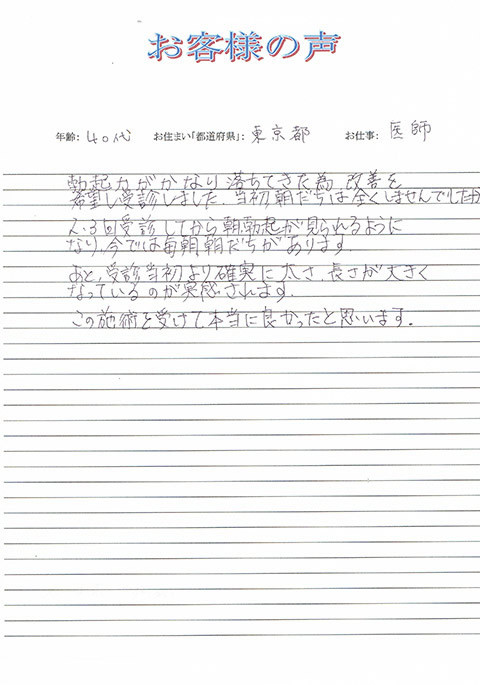 お客様の声
年齢: 40代 お住まい「都道府県」: 東京都 お仕事: 医師
勃起力がかなり落ちてきた為、改善を
希望し受診しました。当初朝だちは全くしませんでしたが
2、3回受診してから朝勃起が見られるように
なり、今では毎朝朝だちがあります
あと、受診当初より確実に太さ、長さが大きく
なっているのが実感されます.
この施術を受けて本当に良かったと思います.